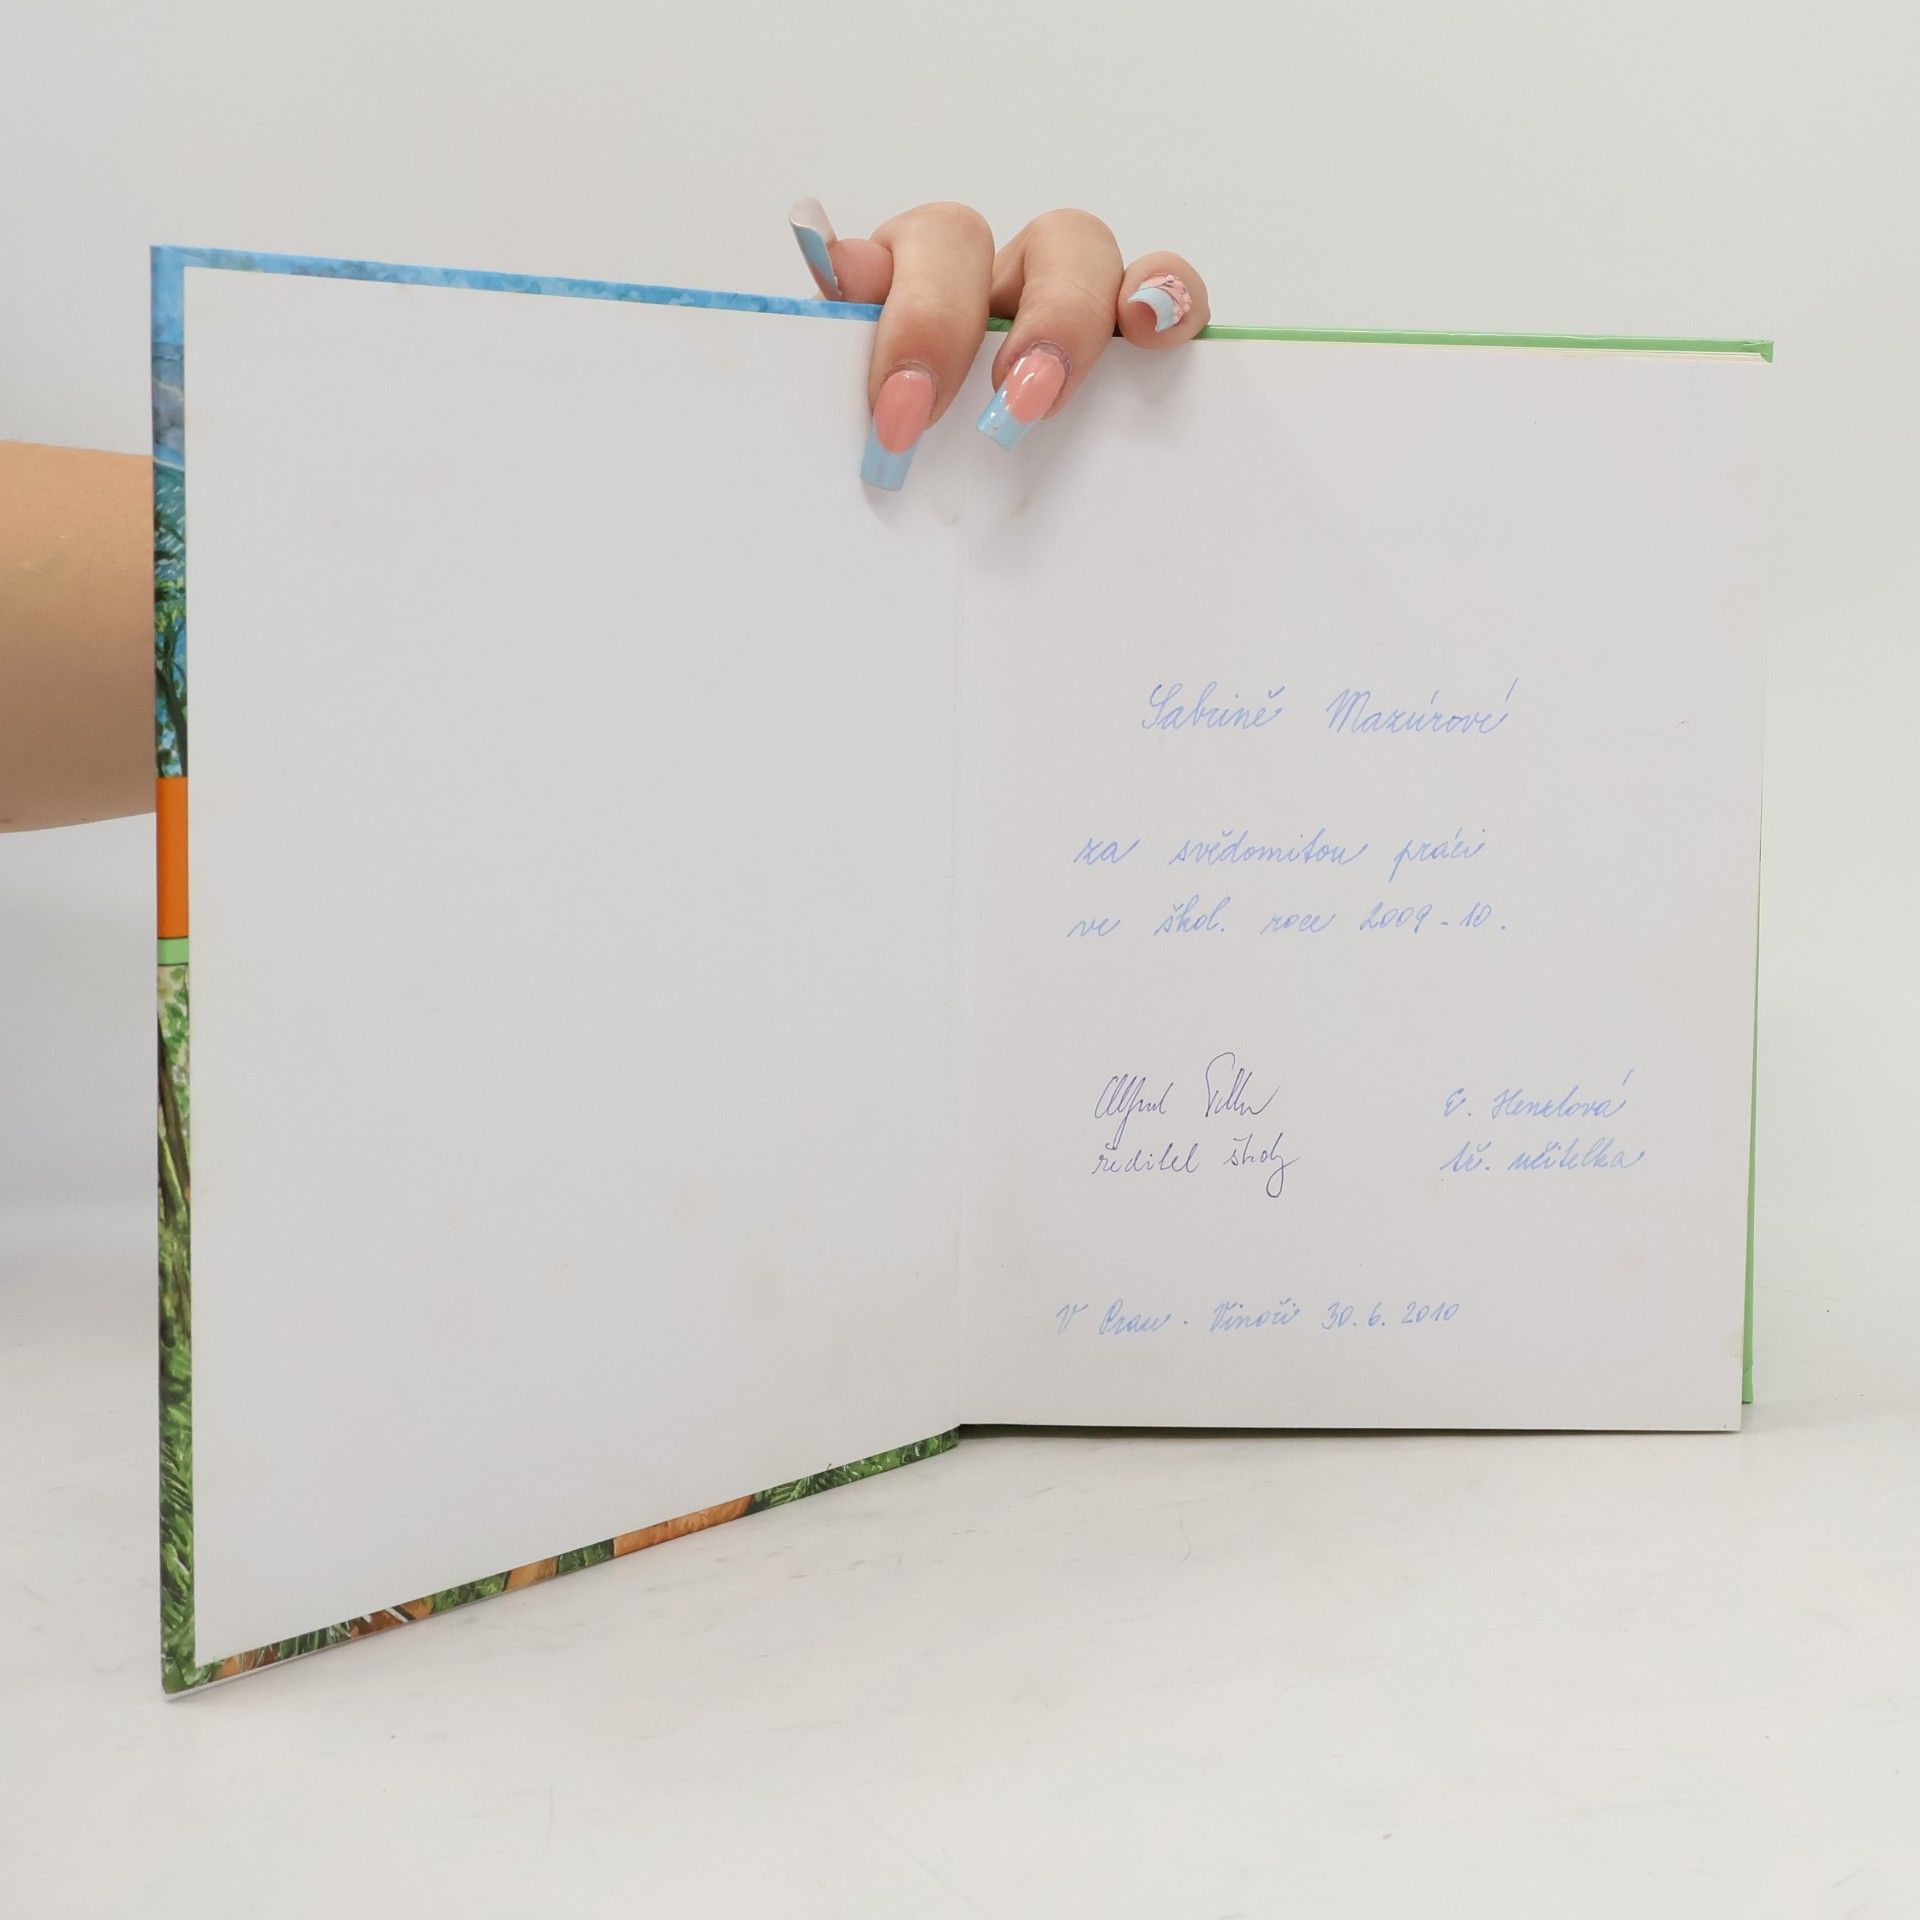 Sabrině Mazúrové
za svědomitou práci
ve škol. roce 2009-10.
Alfred
ředitel školy
E. Henzlová
tř. učitelka
V Praze - Vinoři 30. 6. 2010